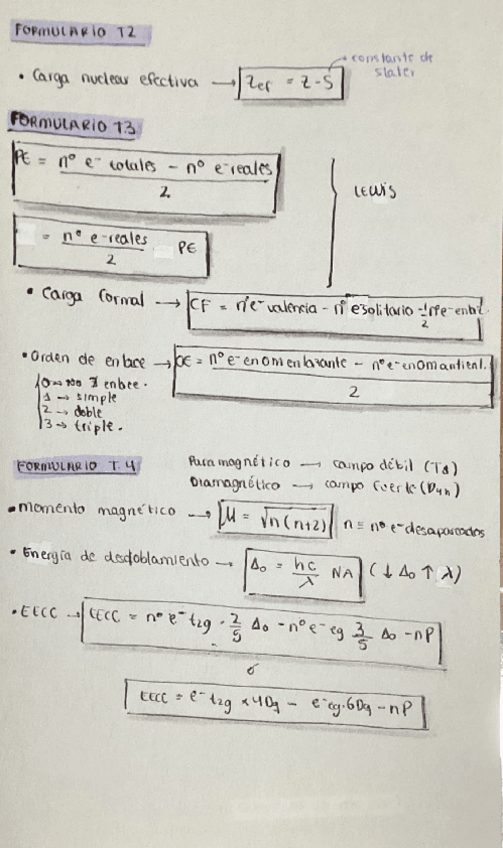 FORMULARIO T2
constante de
slater
• Carga nuclear efectiva → Zef = Z - S
FORMULARIO T3
PE = nº e⁻ totales - nº e⁻ reales / 2
= nº e⁻ reales / 2 PE
LEWIS
• Carga formal → CF = nº e⁻ valencia - nº e⁻ solitario - 1/2 nº e⁻ enl.
• Orden de enlace → OE = nº e⁻ en om enlazante - nº e⁻ en om antienl. / 2
0 → no ∃ enlace.
1 → simple
2 → doble
3 → triple.
FORMULARIO T.4
Paramagnético → campo débil (Td)
Diamagnético → campo fuerte (D4h)
• momento magnético → μ = √n(n+2) n ≡ nº e⁻ desapareados
• Energía de desdoblamiento → Δo = hc/λ NA (↓ Δo ↑ λ)
• EECC → EECC = nº e⁻ t2g · 2/5 Δo - nº e⁻ eg 3/5 Δo - nP
ó
EECC = e⁻ t2g x 4Dq - e⁻ eg · 6Dq - nP